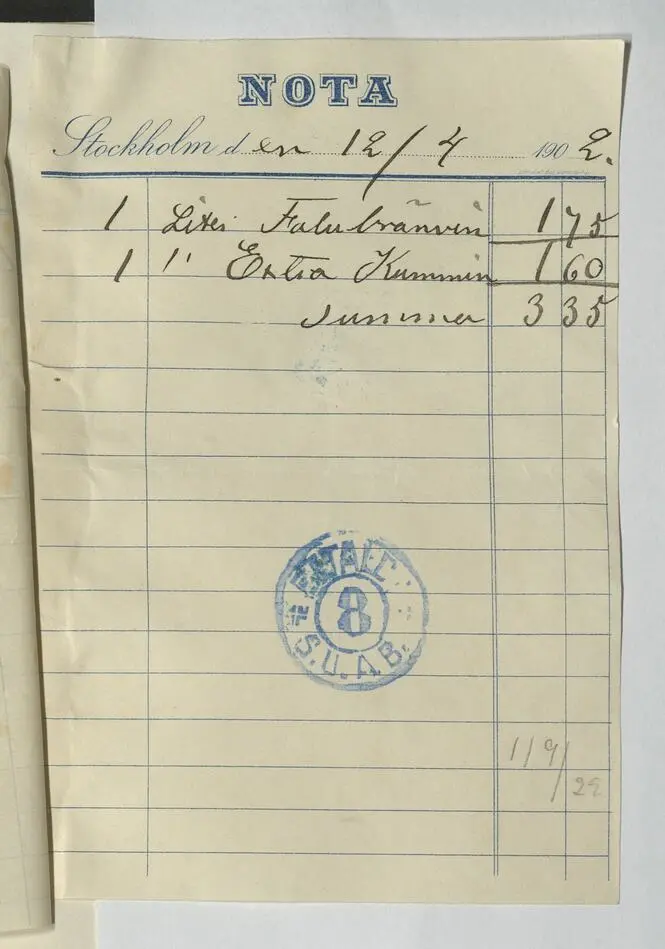 NOTA
Stockholm den 12/4 1902.
1 Liter Falubränvin 1 75
1 " Extra Kummin 1 60
Summa 3 35
8
S.U.A.B.
119/